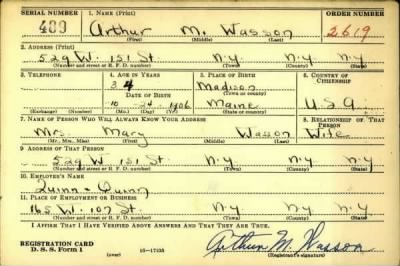 SERIAL NUMBER 1. NAME (Print) ORDER NUMBER
489 Arthur M. Wasson 2619
(First) (Middle) (Last)
2. ADDRESS (Print)
529 W. 151 St. N.Y N.Y
(Number and street or R. F. D. number) (Town) (County) (State)
3. TELEPHONE 4. AGE IN YEARS 5. PLACE OF BIRTH 6. COUNTRY OF CITIZENSHIP
34 Madison
DATE OF BIRTH (Town or county)
10 24 1906 Maine U S A
(Exchange) (Number) (Mo.) (Day) (Yr.) (State or country)
7. NAME OF PERSON WHO WILL ALWAYS KNOW YOUR ADDRESS 8. RELATIONSHIP OF THAT PERSON
Mrs. Mary Wasson Wife
(Mr., Mrs., Miss) (First) (Middle) (Last)
9. ADDRESS OF THAT PERSON
529 W 151 St. N.Y N.Y
(Number and street or R. F. D. number) (Town) (County) (State)
10. EMPLOYER'S NAME
Quinn - Quinn
11. PLACE OF EMPLOYMENT OR BUSINESS
165 W. 107 St. N.Y N.Y
(Number and street or R. F. D. number) (Town) (County) (State)
I AFFIRM THAT I HAVE VERIFIED ABOVE ANSWERS AND THAT THEY ARE TRUE.
REGISTRATION CARD
D. S. S. Form 1 (over) 16-17105 Arthur M. Wasson
(Registrant's signature)